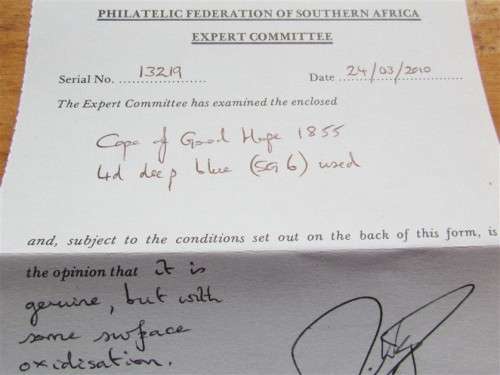 PHILATELIC FEDERATION OF SOUTHERN AFRICA
EXPERT COMMITTEE
Serial No. 13219 Date 24/03/2010
The Expert Committee has examined the enclosed
Cape of Good Hope 1855
4d deep blue (SG 6) used
and, subject to the conditions set out on the back of this form, is
the opinion that it is
genuine, but with
some surface
oxidisation.